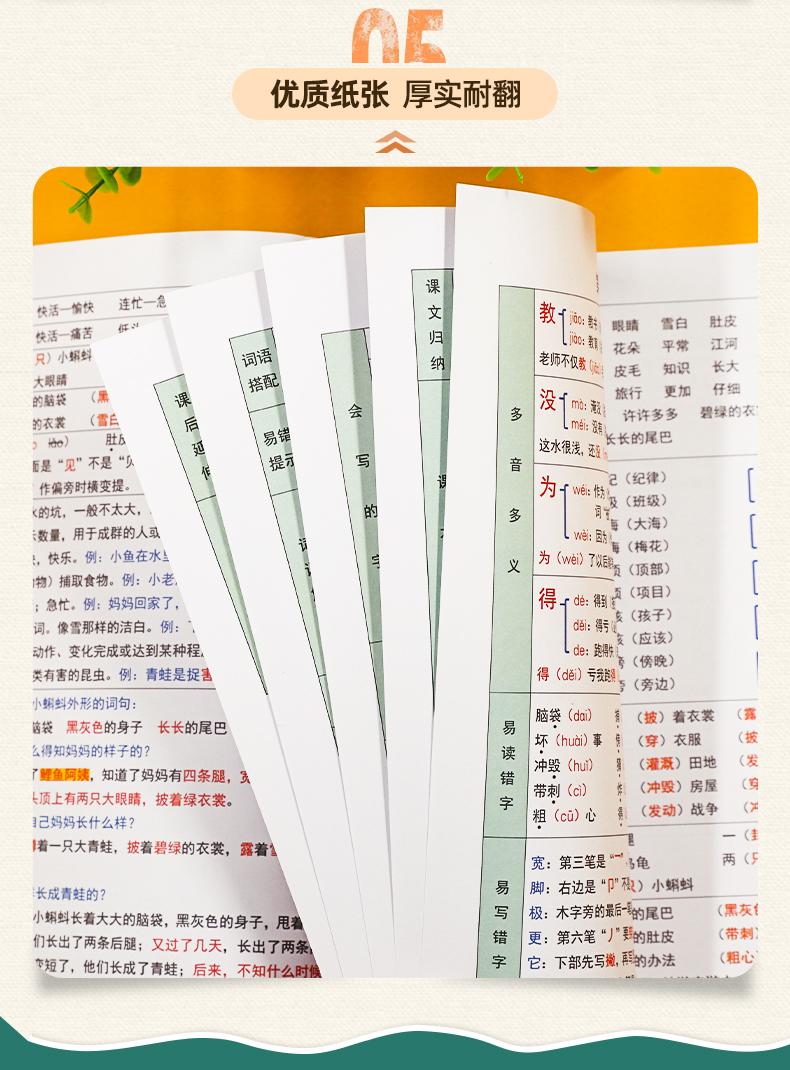 05
优质纸张 厚实耐翻
快活—愉快 连忙—急
快活—痛苦 低头
）小蝌蚪
大眼睛
的脑袋 （黑
的衣裳 （雪白
肚皮
面是“见”不是“贝
作偏旁时横变提。
水的坑，一般不太大，
示数量，用于成群的人或
快乐。例：小鱼在水里
物）捕取食物。例：小老
；急忙。例：妈妈回家了，
词。像雪那样的洁白。例：
动作、变化完成或达到某种程
类有害的昆虫。例：青蛙是捉害
小蝌蚪外形的词句：
脑袋 黑灰色的身子 长长的尾巴
么得知妈妈的样子的？
了鲤鱼阿姨，知道了妈妈有四条腿，宽
头顶上有两只大眼睛，披着绿衣裳。
自己妈妈长什么样？
着一只大青蛙，披着碧绿的衣裳，露着雪
长成青蛙的？
小蝌蚪长着大大的脑袋，黑灰色的身子，甩着
们长出了两条后腿；又过了几天，长出了两条
变短了，他们长成了青蛙；后来，不知什么时候
课后延伸
词语搭配
易错提示
会写的字
课文归纳
课
多音多义
教
jiāo：教书
jiào：教育
老师不仅教（jiāo
没
mò：淹没
méi：没有
这水很浅，还没
为
wéi：作为
词
wèi：因为
为（wèi）了以后
得
dé：得到
děi：得亏
de：跑得快
得（děi）亏我跑得
易读错字
脑袋（dai）
坏（huài）事
冲毁（huǐ）
带刺（cì）
粗（cū）心
易写错字
宽：第三笔是“
脚：右边是“卩”不
极：木字旁的最后一
更：第六笔“丿”要
它：下部先写撇，再写
眼睛 雪白 肚皮
花朵 平常 江河
皮毛 知识 长大
旅行 更加 仔细
许许多多 碧绿的衣
长长的尾巴
（纪律）
（班级）
（大海）
（梅花）
（顶部）
（项目）
（孩子）
（应该）
（傍晚）
（旁边）
（披）着衣裳 （露
（穿）衣服 （披
（灌溉）田地 （发
（冲毁）房屋 （穿
（发动）战争 （冲
腿 一（
乌龟 两（只
）小蝌蚪
的尾巴 （黑灰色
的肚皮 （带刺
的办法 （粗心